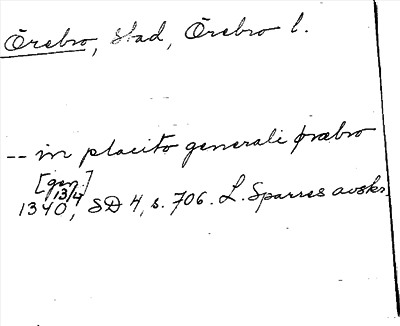 Örebro, stad, Örebro l.
-- in placito generali ørabro
[gen.]
13/4
1340, SD 4, s. 706. L. Sparres avskr.